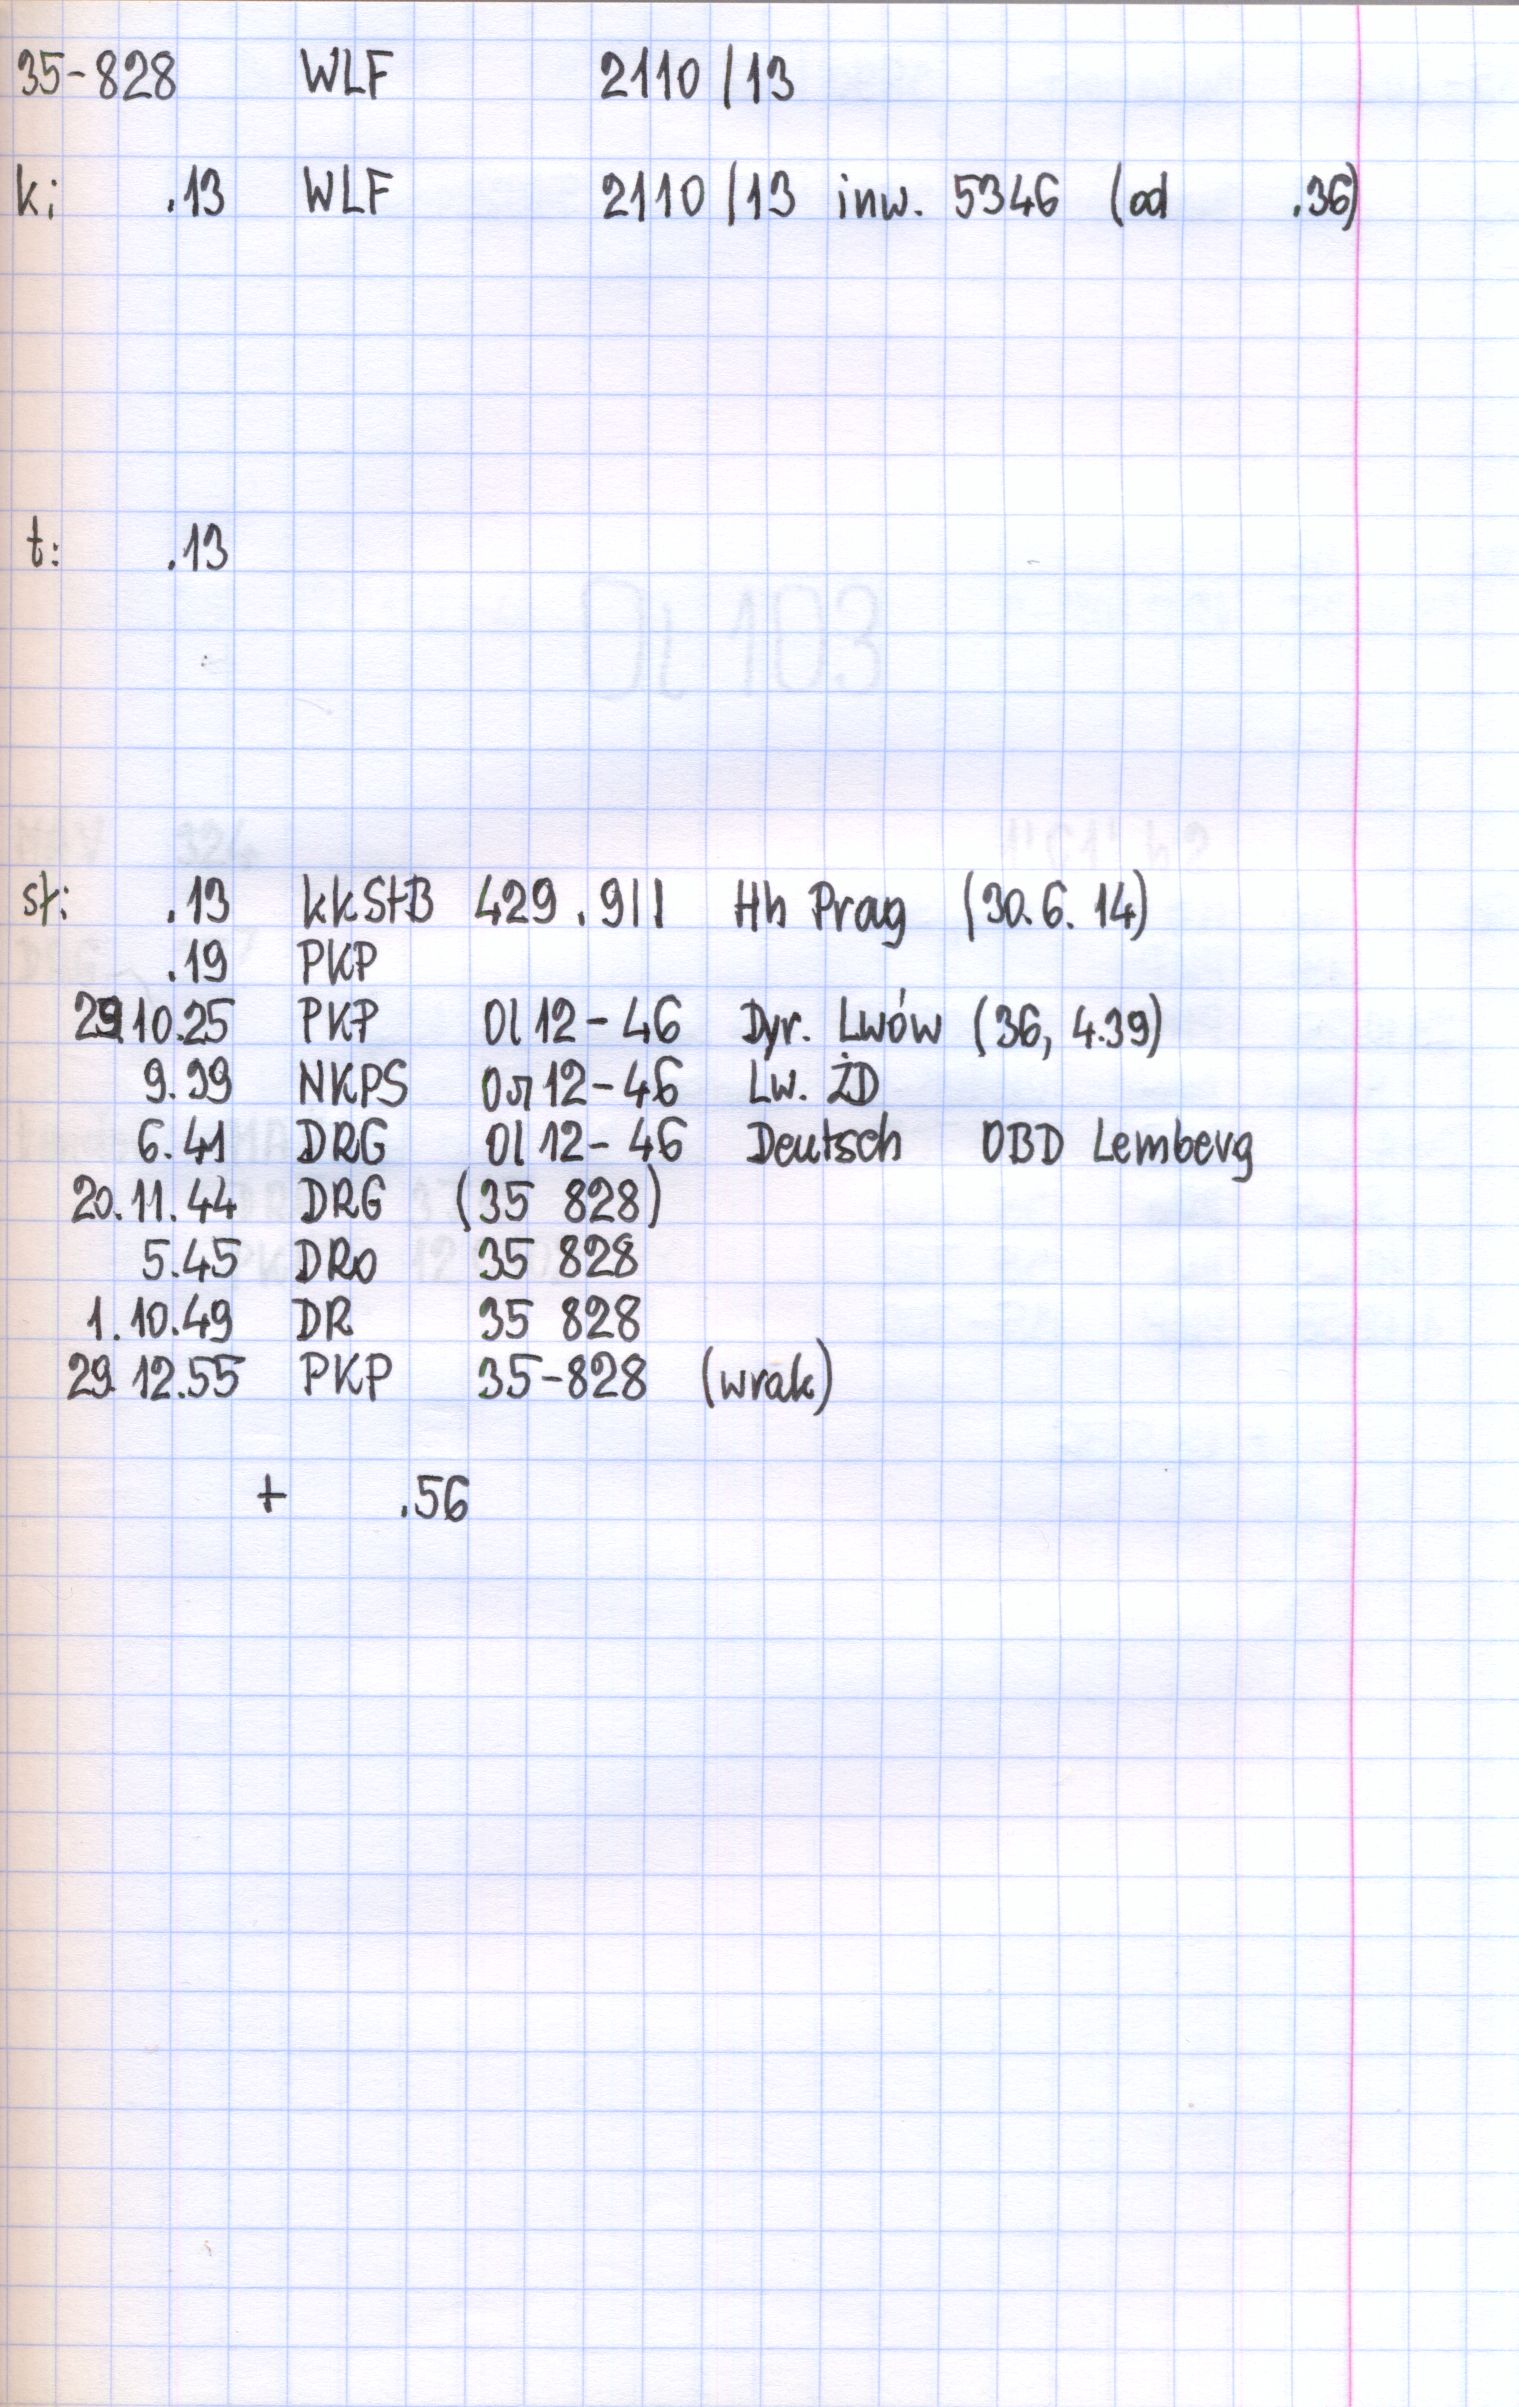 35-828 WLF 2110/13
k: .13 WLF 2110/13 inw. 5346 (od .36)
t: .13
st: .13 kkStB 429.911 Hh Prag (30.6.14)
.19 PKP
29.10.25 PKP Ol12-46 Dyr. Lwów (36, 4.39)
9.39 NKPS Ол12-46 Lw. ŻD
6.41 DRG Ol12-46 Deutsch OBD Lemberg
20.11.44 DRG (35 828)
5.45 DRo 35 828
1.10.49 DR 35 828
29.12.55 PKP 35-828 (wrak)
+ .56